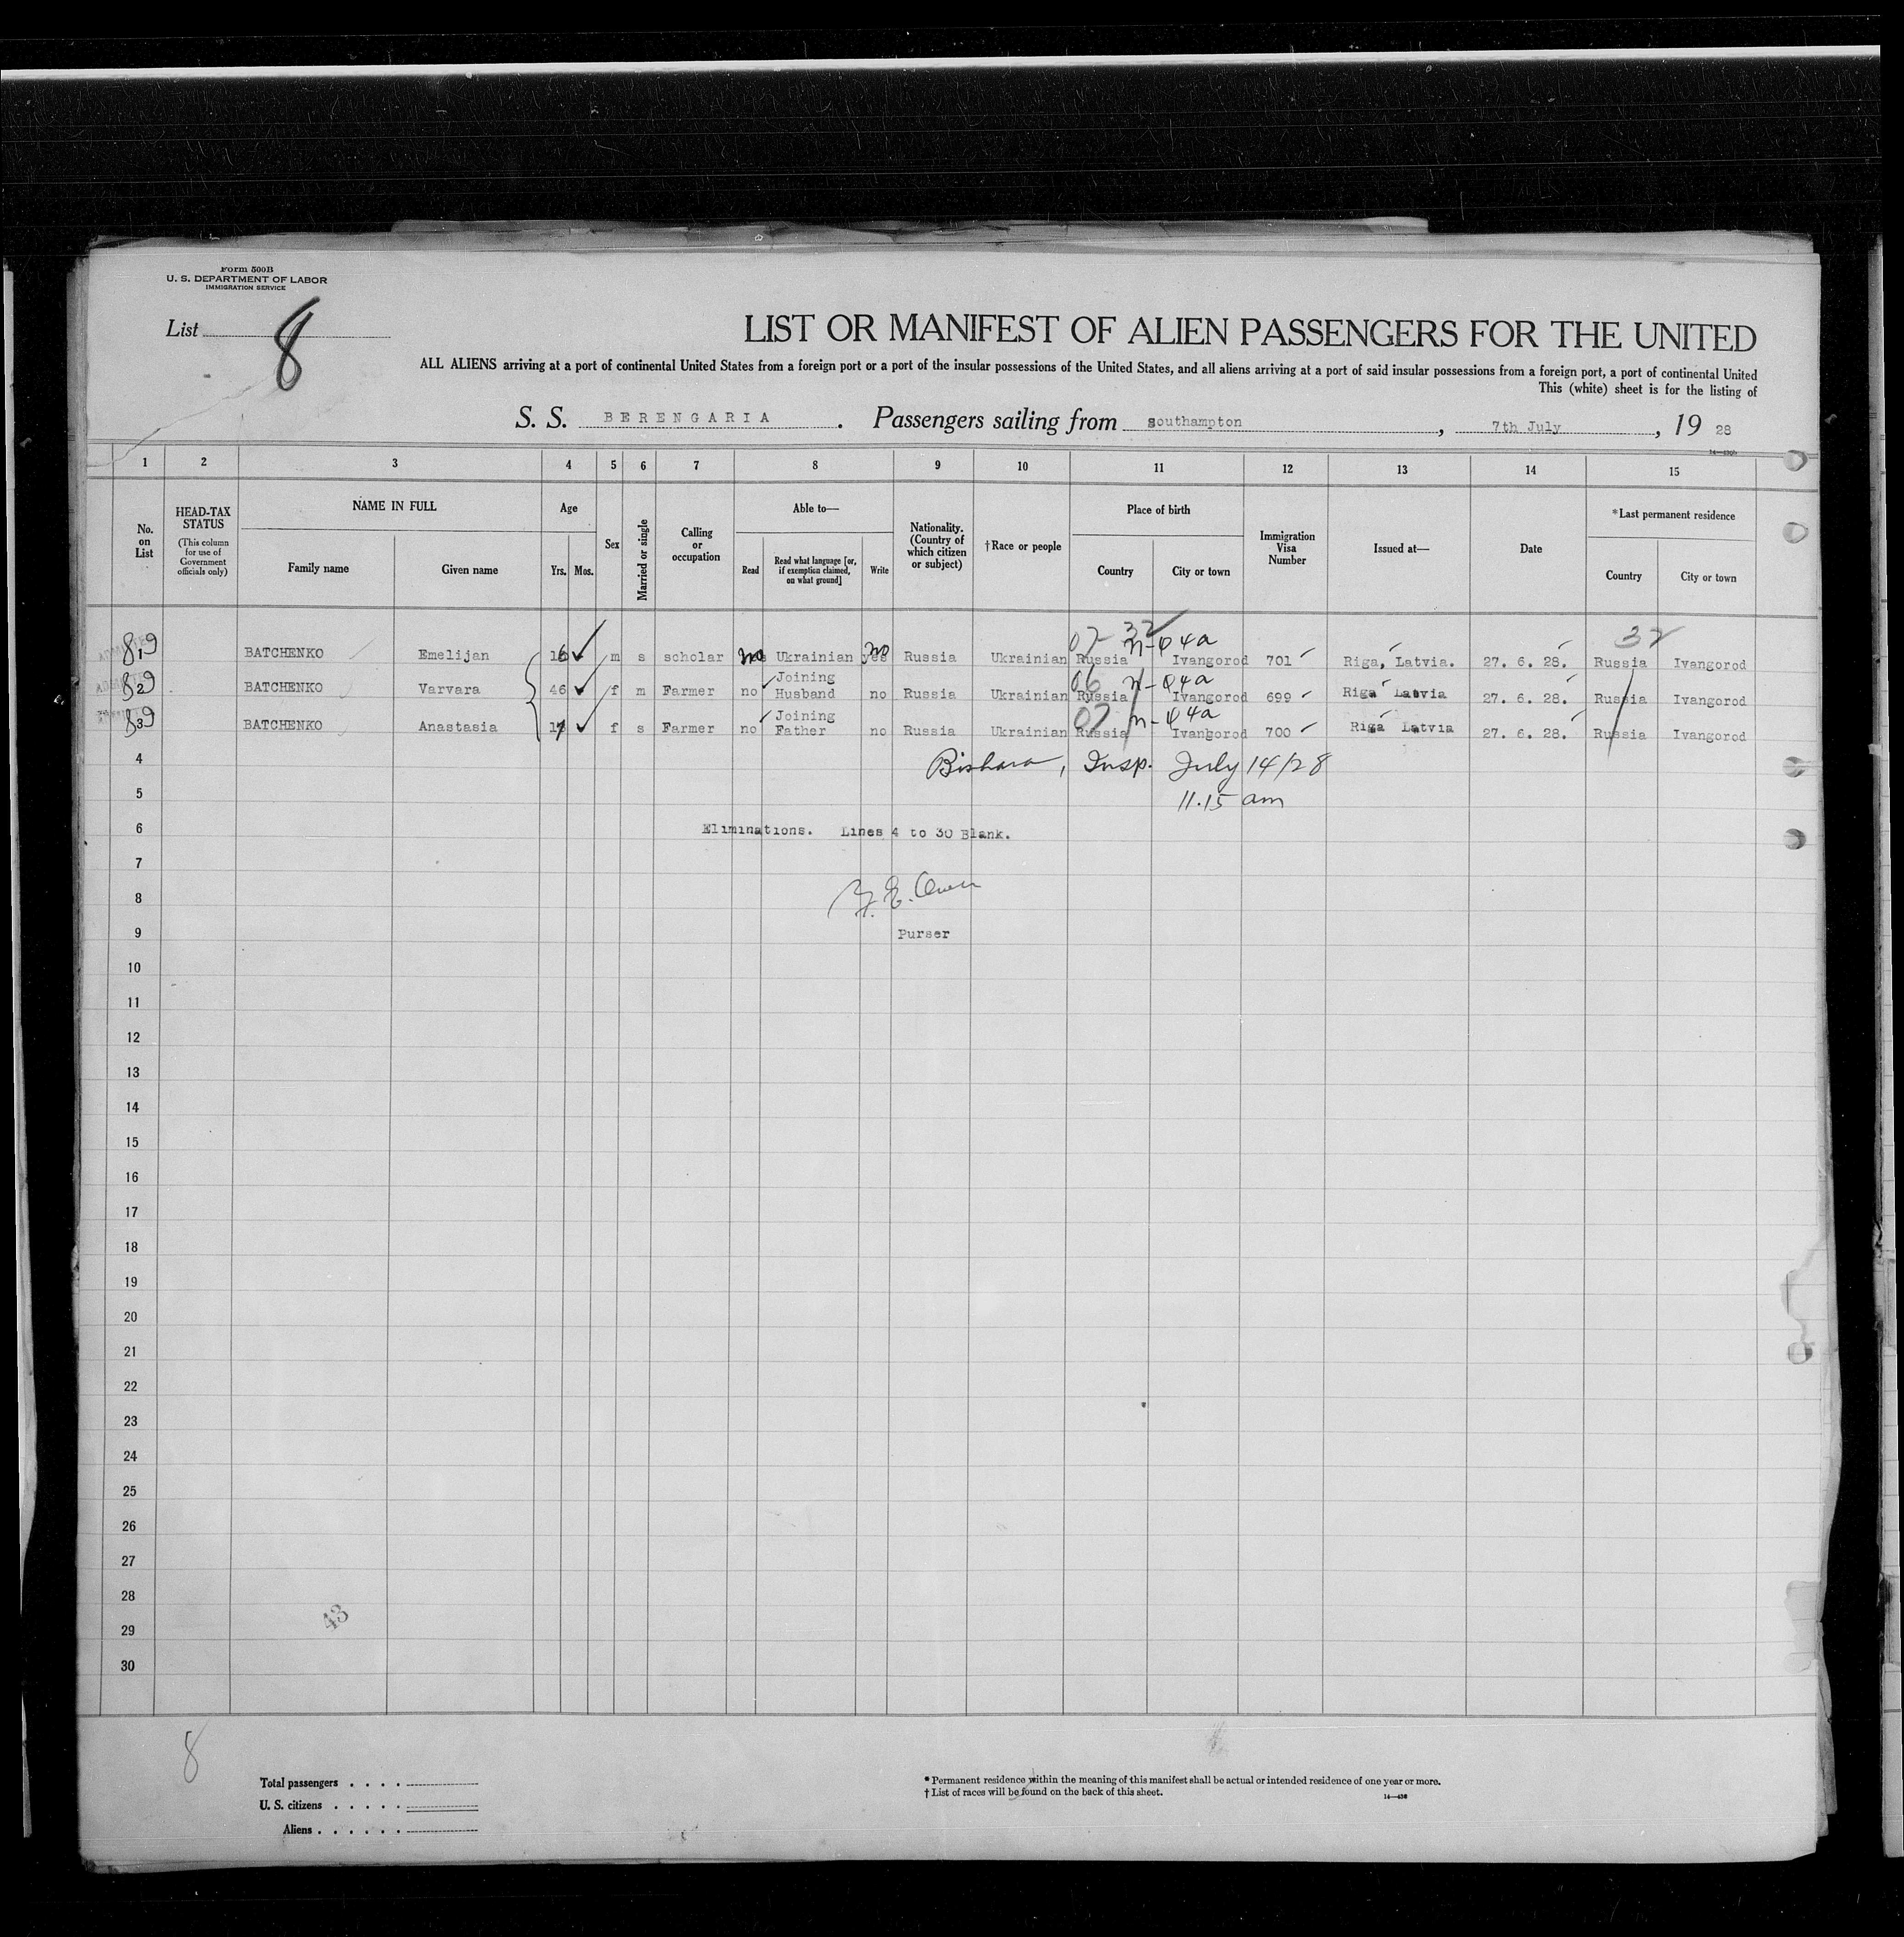 Form 500B
U. S. DEPARTMENT OF LABOR
IMMIGRATION SERVICE
List 8
LIST OR MANIFEST OF ALIEN PASSENGERS FOR THE UNITED
ALL ALIENS arriving at a port of continental United States from a foreign port or a port of the insular possessions of the United States, and all aliens arriving at a port of said insular possessions from a foreign port, a port of continental United
This (white) sheet is for the listing of
S. S. BERENGARIA. Passengers sailing from southampton, 7th July, 19 28
1 2 3 4 5 6 7 8 9 10 11 12 13 14 15
No. on List
HEAD-TAX STATUS (This column for use of Government officials only)
NAME IN FULL
Family name Given name
Age
Yrs. Mos.
Sex
Married or single
Calling or occupation
Able to—
Read
Read what language [or, if exemption claimed, on what ground]
Write
Nationality. (Country of which citizen or subject)
†Race or people
Place of birth
Country City or town
Immigration Visa Number
Issued at—
Date
*Last permanent residence
Country City or town
07 32 n-φ4a 32
819 BATCHENKO Emelijan 16 m s scholar no Ukrainian yes no Russia Ukrainian Russia Ivangorod 701 Riga, Latvia. 27. 6. 28. Russia Ivangorod
06 n-φ4a
829 BATCHENKO Varvara 46 f m Farmer no Joining Husband no Russia Ukrainian Russia Ivangorod 699 Riga Latvia 27. 6. 28. Russia Ivangorod
07 n-φ4a
839 BATCHENKO Anastasia 17 f s Farmer no Joining Father no Russia Ukrainian Russia Ivangorod 700 Riga Latvia 27. 6. 28. Russia Ivangorod
4 Bishara, Insp. July 14/28
5 11.15 am
6 Eliminations. Lines 4 to 30 Blank.
7
8
9 Purser
10
11
12
13
14
15
16
17
18
19
20
21
22
23
24
25
26
27
28
43
29
30
8
Total passengers . . . .
U. S. citizens . . . . .
Aliens . . . . . .
* Permanent residence within the meaning of this manifest shall be actual or intended residence of one year or more.
† List of races will be found on the back of this sheet.